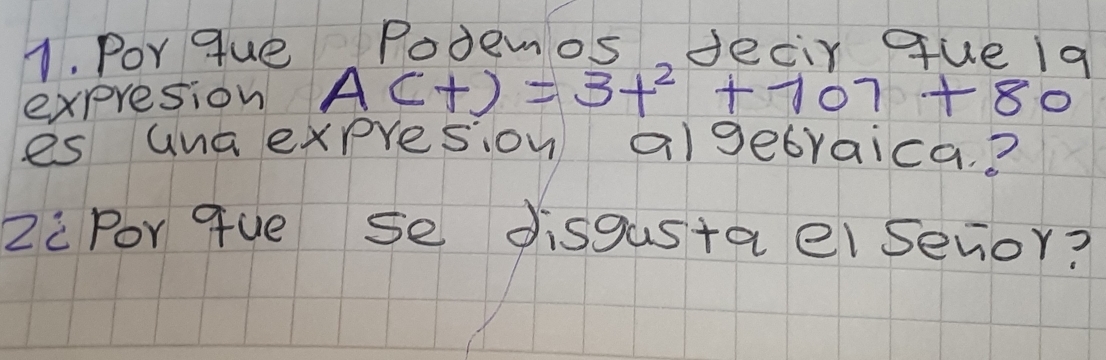 1. Por que Podemos decir que la
expresion A(t) = 3t² + 107 + 80
es una expresion algebraica.?
2¿ Por que se disgusta el Señor?